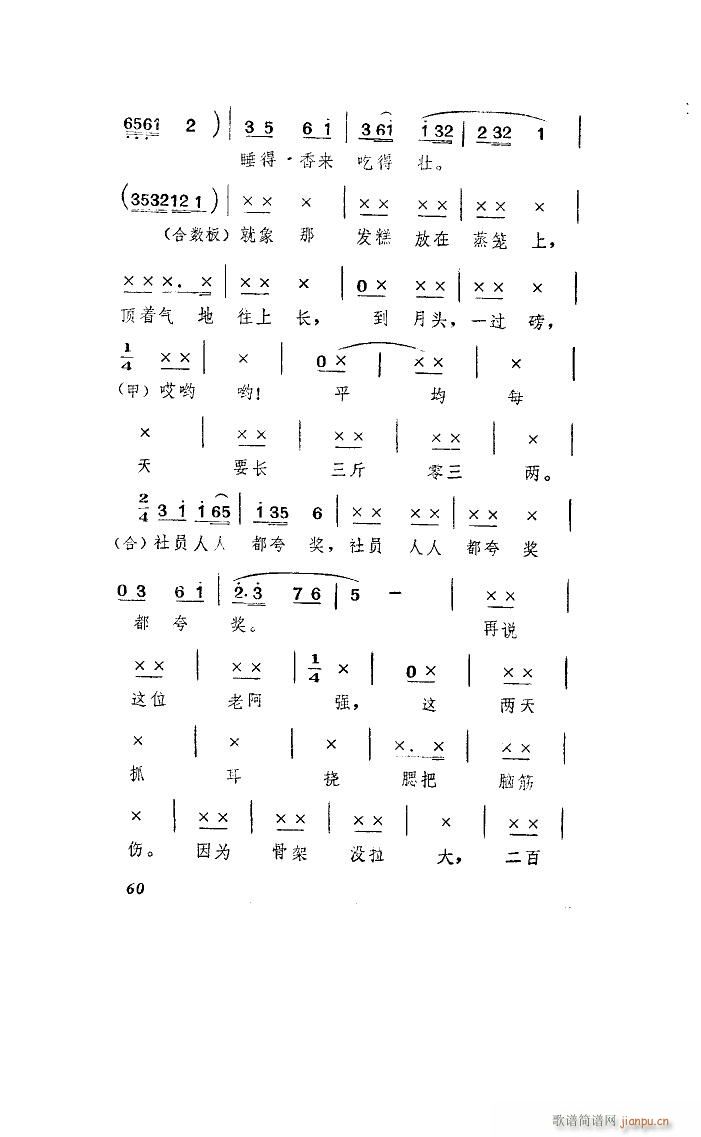 6561 2 ) | 3 5 6 i | 3 6i i32 | 2 32 1 |
睡得·香来 吃得 壮。
( 3532121 ) | × × × | × × × × | × × × |
(合数板) 就象 那 发糕 放在 蒸笼 上,
× × ×. × | × × × | 0 × × × | × × × |
顶着气 地 往上 长, 到 月头, 一过 磅,
1/4 × × | × | 0 × | × × | ×
(甲) 哎哟 哟! 平 均 每
× | × × | × × | × × | × |
天 要长 三斤 零三 两。
2/4 3 i i 65 | i 35 6 | × × × × | × × × |
(合) 社员人人 都夸 奖, 社员 人人 都夸 奖
0 3 6 i | 2. 3 7 6 | 5 – | × ×
都 夸 奖。 再说
× × | × × | 1/4 × | 0 × | × × |
这位 老阿 强, 这 两天
× | × | × | ×. × | × × |
抓 耳 挠 腮把 脑筋
× | × × | × × | × × | × | × × |
伤。 因为 骨架 没拉 大, 二百
60
歌谱简谱网 jianpu.cn